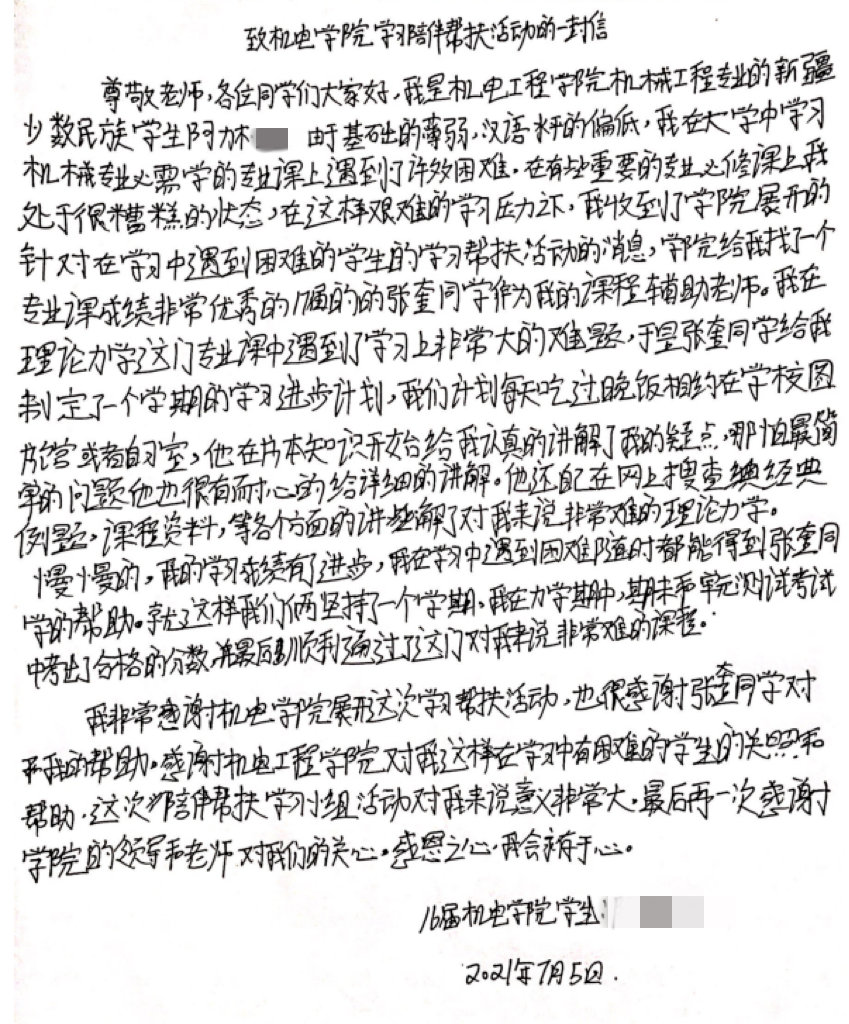 致机电学院学习陪伴帮扶活动的一封信
尊敬老师，各位同学们大家好，我是机电工程学院机械工程专业的新疆
少数民族学生阿力木 由于基础的薄弱，汉语水平的偏低，我在大学中学习
机械专业必需学的专业课上遇到了许多困难。在有些重要的专业必修课上我
处于很糟糕的状态，在这样艰难的学习压力下，我收到了学院展开的
针对在学习中遇到困难的学生的学习帮扶活动的消息，学院给我找了一个
专业课成绩非常优秀的17届的的张奎同学作为我的课程辅助老师。我在
理论力学这门专业课中遇到了学习上非常大的难题，于是张奎同学给我
制定了一个学期的学习进步计划，我们计划每天吃过晚饭相约在学校图
或者自习室，他在书本知识开始给我认真的讲解了我的疑点，哪怕最简
单的问题他也很有耐心的给详细的讲解。他还自己在网上搜查经典
例题，课程资料，等各个方面的讲解了对我来说非常难的理论力学。
慢慢的，我的学习成绩有了进步，我在学习中遇到困难随时都能得到张奎同
学的帮助。就这样我们俩坚持了一个学期，我在力学期中，期末和单元测试考试
中考出了合格的分数，并最后顺利通过了这门对我来说非常难的课程。
我非常感谢机电学院展开这次学习帮扶活动，也很感谢张奎同学对
我的帮助。感谢机电工程学院对我这样在学习中有困难的学生的关照和
帮助。这次陪伴帮扶学习小组活动对我来说意义非常大。最后再一次感谢
学院的领导和老师对我们的关心。感恩之心，我会永存于心。
16届机电学院学生
2021年7月5日.